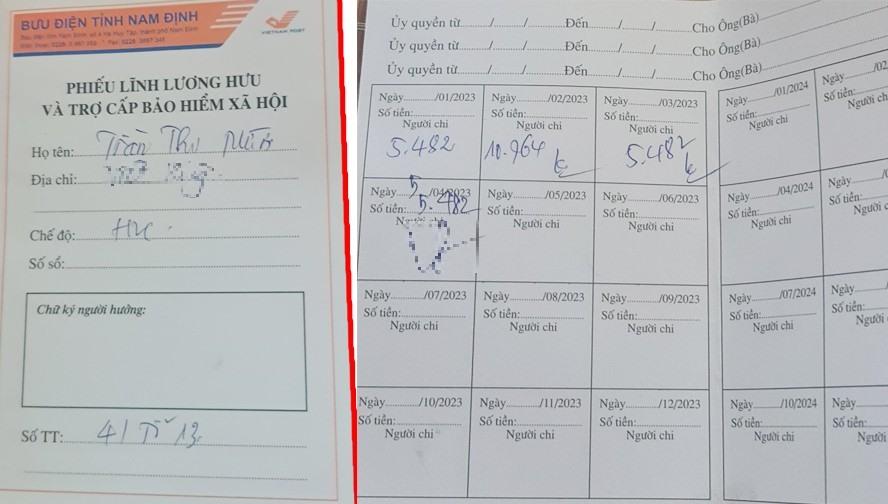 BƯU ĐIỆN TỈNH NAM ĐỊNH
VIETNAM POST
PHIẾU LĨNH LƯƠNG HƯU
VÀ TRỢ CẤP BẢO HIỂM XÃ HỘI
Họ tên: Trần Thị
Địa chỉ:
Chế độ: Hưu
Số sổ:
Chữ ký người hưởng:
Số TT: 41 Tổ 13
Ủy quyền từ / / Đến / / Cho Ông(Bà)
Ủy quyền từ / / Đến / / Cho Ông(Bà)
Ủy quyền từ / / Đến / / Cho Ông(Bà)
Ngày /01/2023 Ngày /02/2023 Ngày /03/2023 Ngày /01/2024 Ngày /02
Số tiền: Số tiền: Số tiền: Số tiền: Số tiền:
Người chi Người chi Người chi Người chi Người ch
5.482 10.964 5.482
Ngày 5 /04/2023 Ngày /05/2023 Ngày /06/2023 Ngày /04/2024 Ngày
Số tiền: 5.482 Số tiền: Số tiền: Số tiền: Số tiền:
Người chi Người chi Người chi Người c
Ngày /07/2023 Ngày /08/2023 Ngày /09/2023 Ngày /07/2024 Ngày
Số tiền: Số tiền: Số tiền: Số tiền: Số tiền:
Người chi Người chi Người chi Người chi Người
Ngày /10/2023 Ngày /11/2023 Ngày /12/2023 Ngày /10/2024 Ngày
Số tiền: Số tiền: Số tiền: Số tiền: Số tiền:
Người chi Người chi Người chi Người chi Người